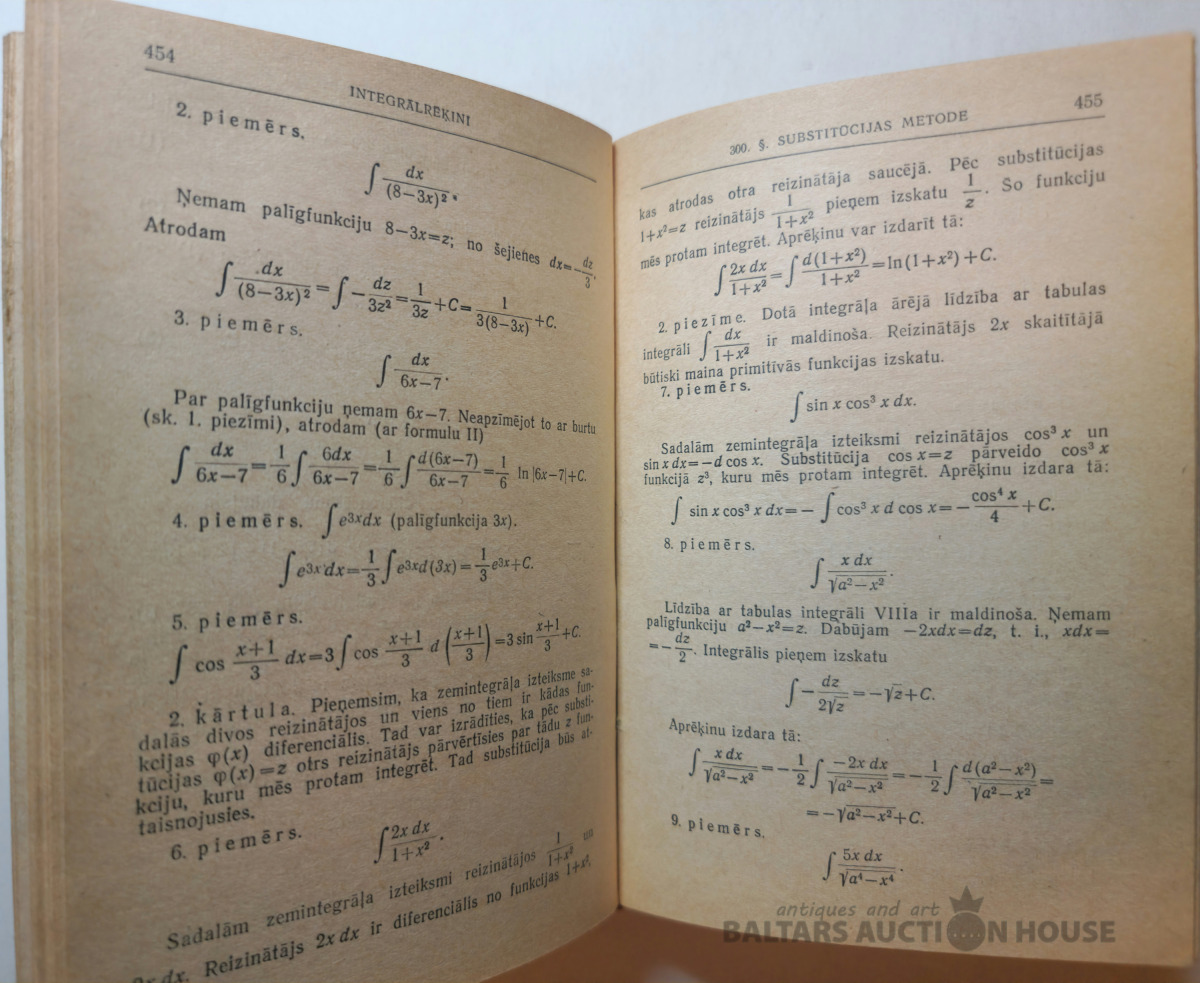 454
INTEGRĀLRĒĶINI
2. piemērs.
∫ dx/(8−3x)².
Ņemam palīgfunkciju 8−3x=z; no šejienes dx=−dz/3.
Atrodam
∫ dx/(8−3x)² = ∫ − dz/3z² = 1/3z + C = 1/3(8−3x) + C.
3. piemērs.
∫ dx/6x−7.
Par palīgfunkciju ņemam 6x−7. Neapzīmējot to ar burtu
(sk. 1. piezīmi), atrodam (ar formulu II)
∫ dx/6x−7 = 1/6 ∫ 6dx/6x−7 = 1/6 ∫ d(6x−7)/6x−7 = 1/6 ln |6x−7|+C.
4. piemērs. ∫ e³ˣdx (palīgfunkcija 3x).
∫ e³ˣ dx = 1/3 ∫ e³ˣd(3x) = 1/3 e³ˣ+C.
5. piemērs.
∫ cos x+1/3 dx=3 ∫ cos x+1/3 d (x+1/3) =3 sin x+1/3 +C.
2. kārtula. Pieņemsim, ka zemintegrāļa izteiksme sa-
dalās divos reizinātājos un viens no tiem ir kādas fun-
kcijas φ(x) diferenciālis. Tad var izrādīties, ka pēc substi-
tūcijas φ(x)=z otrs reizinātājs pārvērtīsies par tādu z fun-
kciju, kuru mēs protam integrēt. Tad substitūcija būs at-
taisnojusies.
6. piemērs.
∫ 2x dx/1+x².
Sadalām zemintegrāļa izteiksmi reizinātājos 1/1+x² un
2x dx. Reizinātājs 2x dx ir diferenciālis no funkcijas 1+x²,
455
300. §. SUBSTITŪCIJAS METODE
kas atrodas otra reizinātāja saucējā. Pēc substitūcijas
1+x²=z reizinātājs 1/1+x² pieņem izskatu 1/z. Šo funkciju
mēs protam integrēt. Aprēķinu var izdarīt tā:
∫ 2x dx/1+x² = ∫ d(1+x²)/1+x² =ln(1+x²)+C.
2. piezīme. Dotā integrāļa ārējā līdzība ar tabulas
integrāli ∫ dx/1+x² ir maldinoša. Reizinātājs 2x skaitītājā
būtiski maina primitīvās funkcijas izskatu.
7. piemērs.
∫ sin x cos³ x dx.
Sadalām zemintegrāļa izteiksmi reizinātājos cos³ x un
sin x dx=−d cos x. Substitūcija cos x=z pārveido cos³ x
funkcijā z³, kuru mēs protam integrēt. Aprēķinu izdara tā:
∫ sin x cos³ x dx=− ∫ cos³ x d cos x=− cos⁴ x/4 +C.
8. piemērs.
∫ x dx/√a²−x².
Līdzība ar tabulas integrāli VIIIa ir maldinoša. Ņemam
palīgfunkciju a²−x²=z. Dabūjam −2xdx=dz, t. i., xdx=
=− dz/2. Integrālis pieņem izskatu
∫ − dz/2√z =−√z+C.
Aprēķinu izdara tā:
∫ x dx/√a²−x² =− 1/2 ∫ −2x dx/√a²−x² =− 1/2 ∫ d(a²−x²)/√a²−x² =
=−√a²−x²+C.
9. piemērs.
∫ 5x dx/√a⁴−x⁴.
antiques and art
BALTARS AUCTION HOUSE